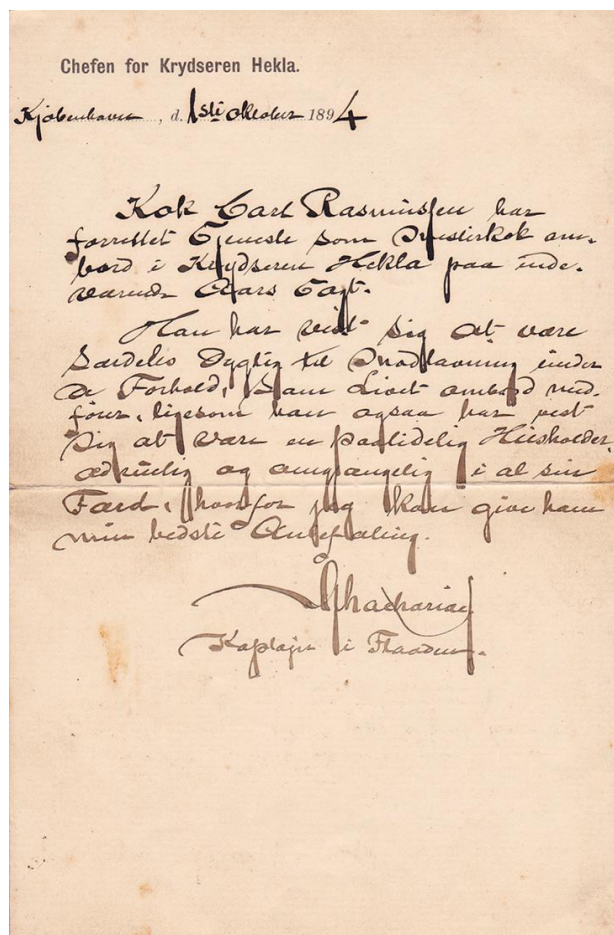 Chefen for Krydseren Hekla.
Kjøbenhavn, d. 1ste Oktober 1894
Kok Carl Rasmussen har
forrettet Tjeneste som Mesterkok om-
bord i Krydseren Hekla paa inde-
værende Aars Togt.
Han har vist sig at være
særdeles dygtig til Madlavning under
de Forhold, som Livet ombord med-
fører, ligesom han ogsaa har vist
sig at være en paalidelig Husholder,
ædruelig og omgængelig i al sin
Færd, hvorfor jeg kan give ham
min bedste Anbefaling.
Zachariae
Kaptajn i Flaaden.